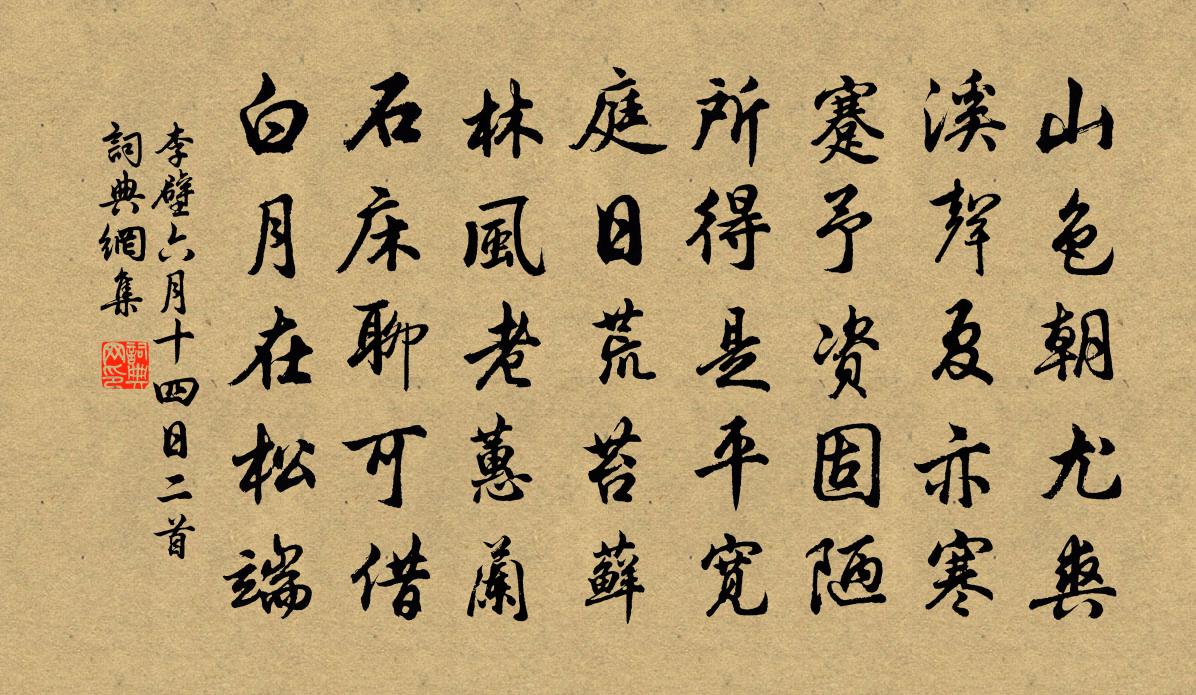 山色朝尤爽
溪聲夏亦寒
蹇予資固陋
所得是平寬
庭日荒苔蘚
林風老蕙蘭
石床聊可借
白月在松端
李壁六月十四日二首
詞典網集
詞典
网印